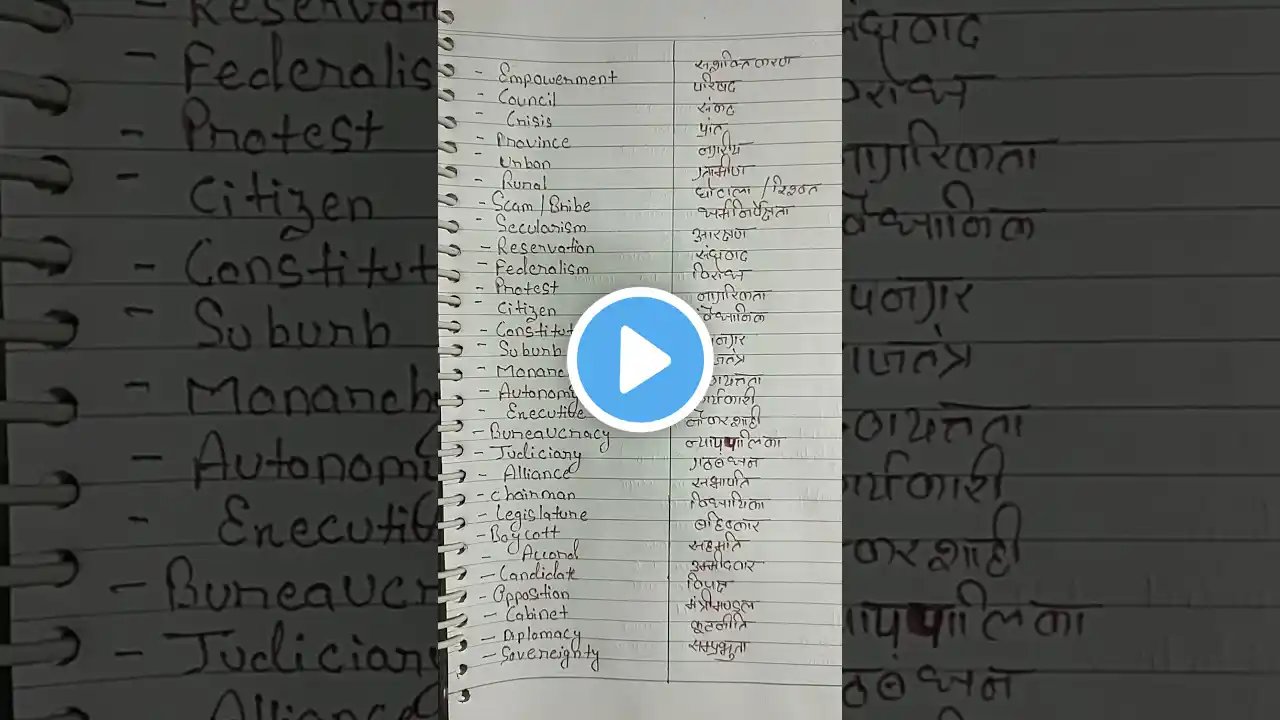 - Empowerment सशक्तिकरण
- Council परिषद
- Crisis संकट
- Province प्रांत
- Urban नगरीय
- Rural ग्रामीण
- Scam/Bribe घोटाला / रिश्वत
- Secularism धर्मनिर्पेक्षता
- Reservation आरक्षण
- Federalism संघवाद
- Protest विरोध
- Citizen नागरिकता
- Constitut वैधानिक
- Suburb पनगर
- Monarc जतंत्र
- Autonomy यत्तता
- Executive र्यकारी
- Bureaucracy नौकरशाही
- Judiciary न्यायपालिका
- Alliance गठबंधन
- Chairman सभापति
- Legislature विधायिका
- Boycott बहिष्कार
- Accord सहमति
- Candidate उम्मीदवार
- Opposition विपक्ष
- Cabinet मंत्रीमण्डल
- Diplomacy कूटनीति
- Sovereignty सम्प्रभुता